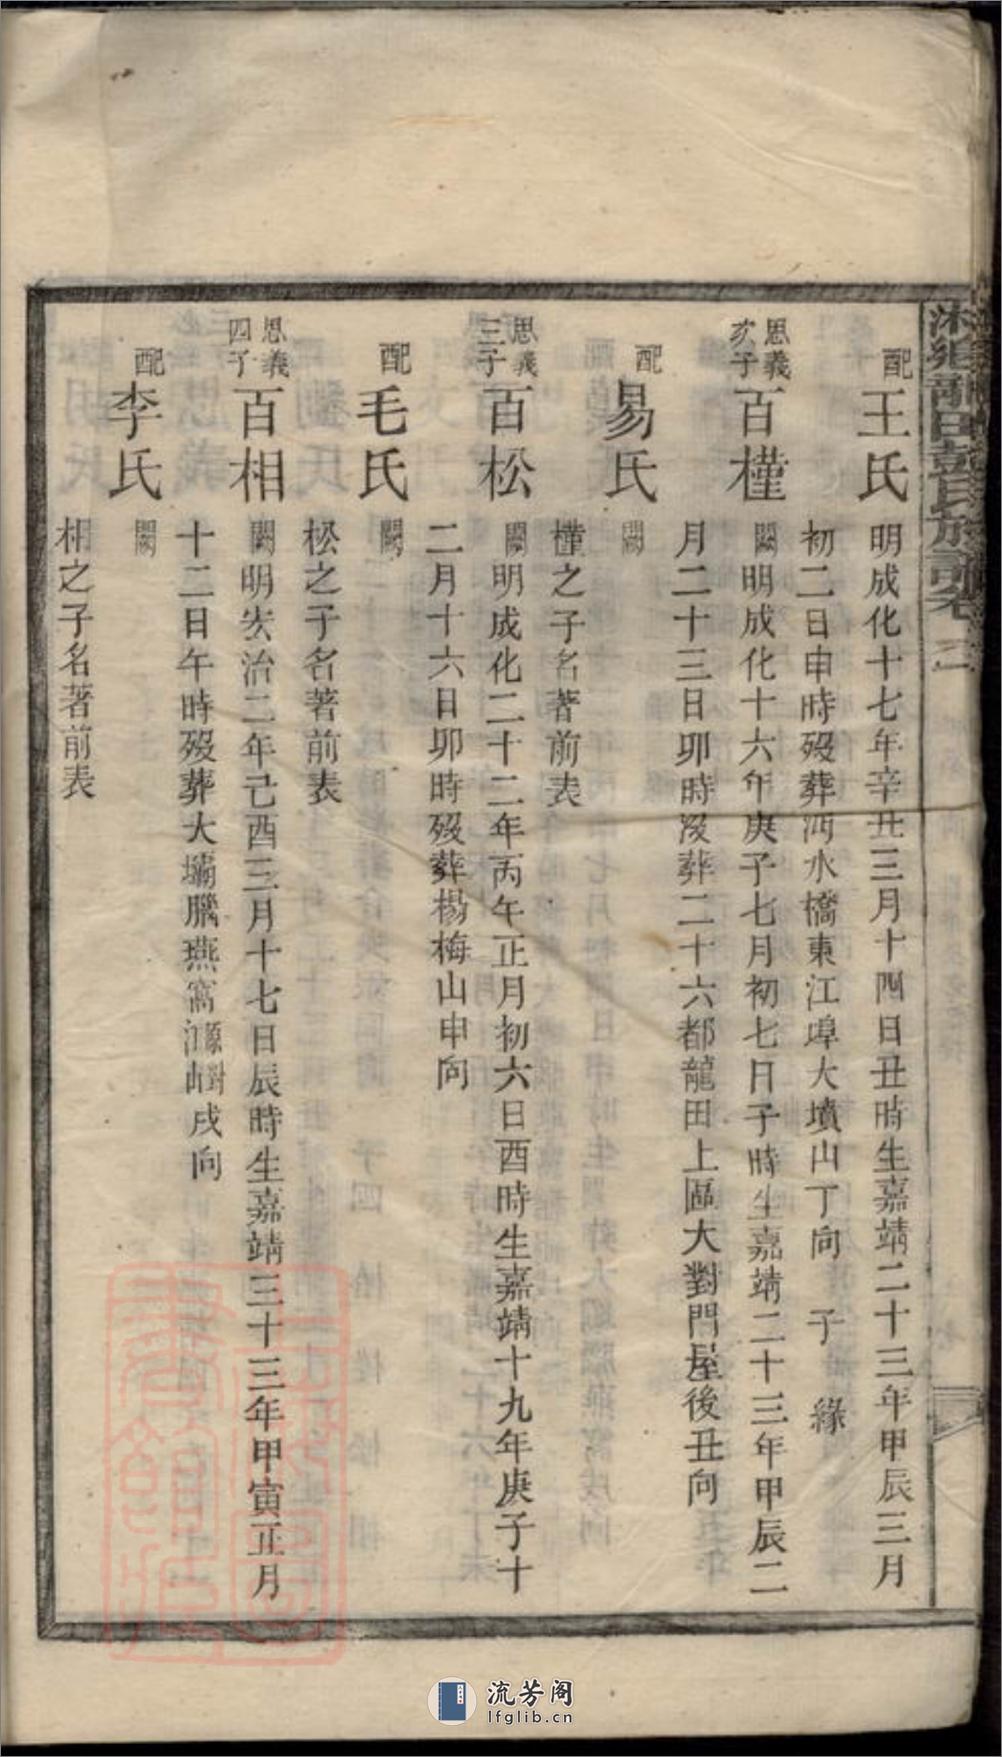 配王氏明成化十七年辛丑三月十四日丑時生嘉靖二十三年甲辰三月
初二日申時歿葬沔水橋東江埠大墳山丁向 子 緣
思義亥子百槿闕明成化十六年庚子七月初七日子時生嘉靖二十三年甲辰二
月二十三日卯時歿葬二十六都龍田上區大對門屋後丑向
配易氏闕
槿之子名著前表
思義三子百松闕明成化二十二年丙午正月初六日酉時生嘉靖十九年庚子十
二月十六日卯時歿葬楊梅山申向
配毛氏闕
松之子名著前表
思義四子百相闕明宏治二年己酉三月十七日辰時生嘉靖三十三年甲寅正月
十二日午時歿葬大壩臘燕窩戌向
配李氏闕
相之子名著前表
田彭氏族譜卷
流芳阁
lfglib.cn